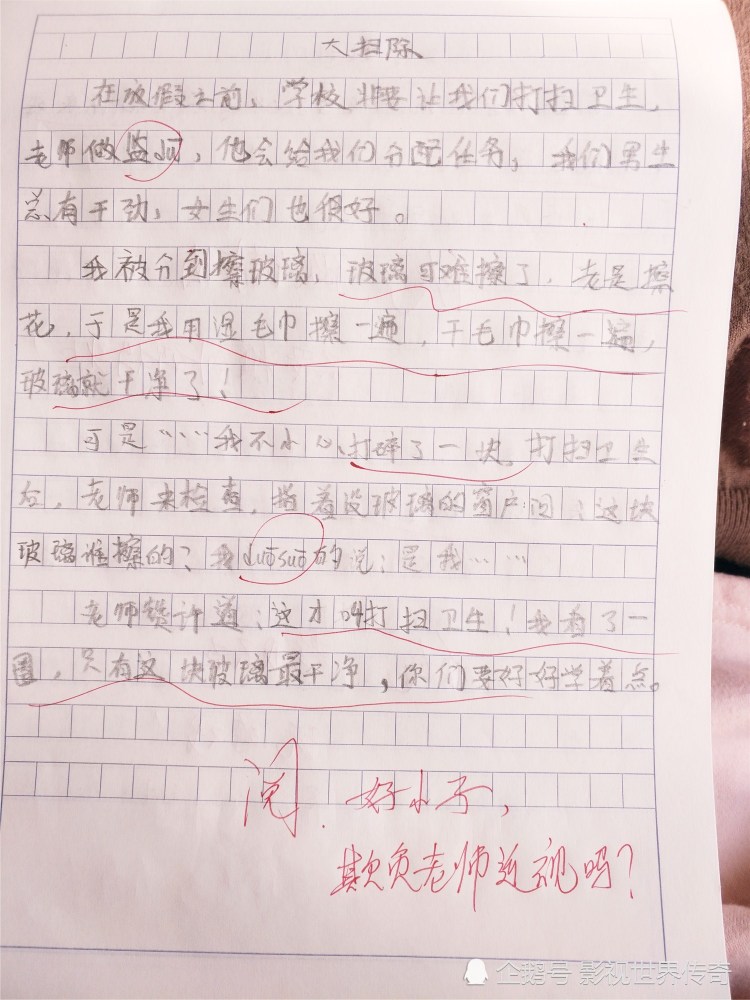 大扫除
在放假之前，学校非要让我们打扫卫生，
老师做监工，他会给我们分配任务，我们男生
总有干劲，女生们也很好。
我被分到擦玻璃，玻璃可难擦了，老是擦
花，于是我用湿毛巾擦一遍，干毛巾擦一遍，
玻璃就干净了！
可是……我不小心打碎了一块。打扫卫生
后，老师来检查，指着没玻璃的窗户问：这块
玻璃谁擦的？我 的说：是我……
老师赞许道：这才叫打扫卫生！我看了一
圈，只有这块玻璃最干净，你们要好好学着点。
阅. 好小子，
欺负老师近视吗？
企鹅号 影视世界传奇